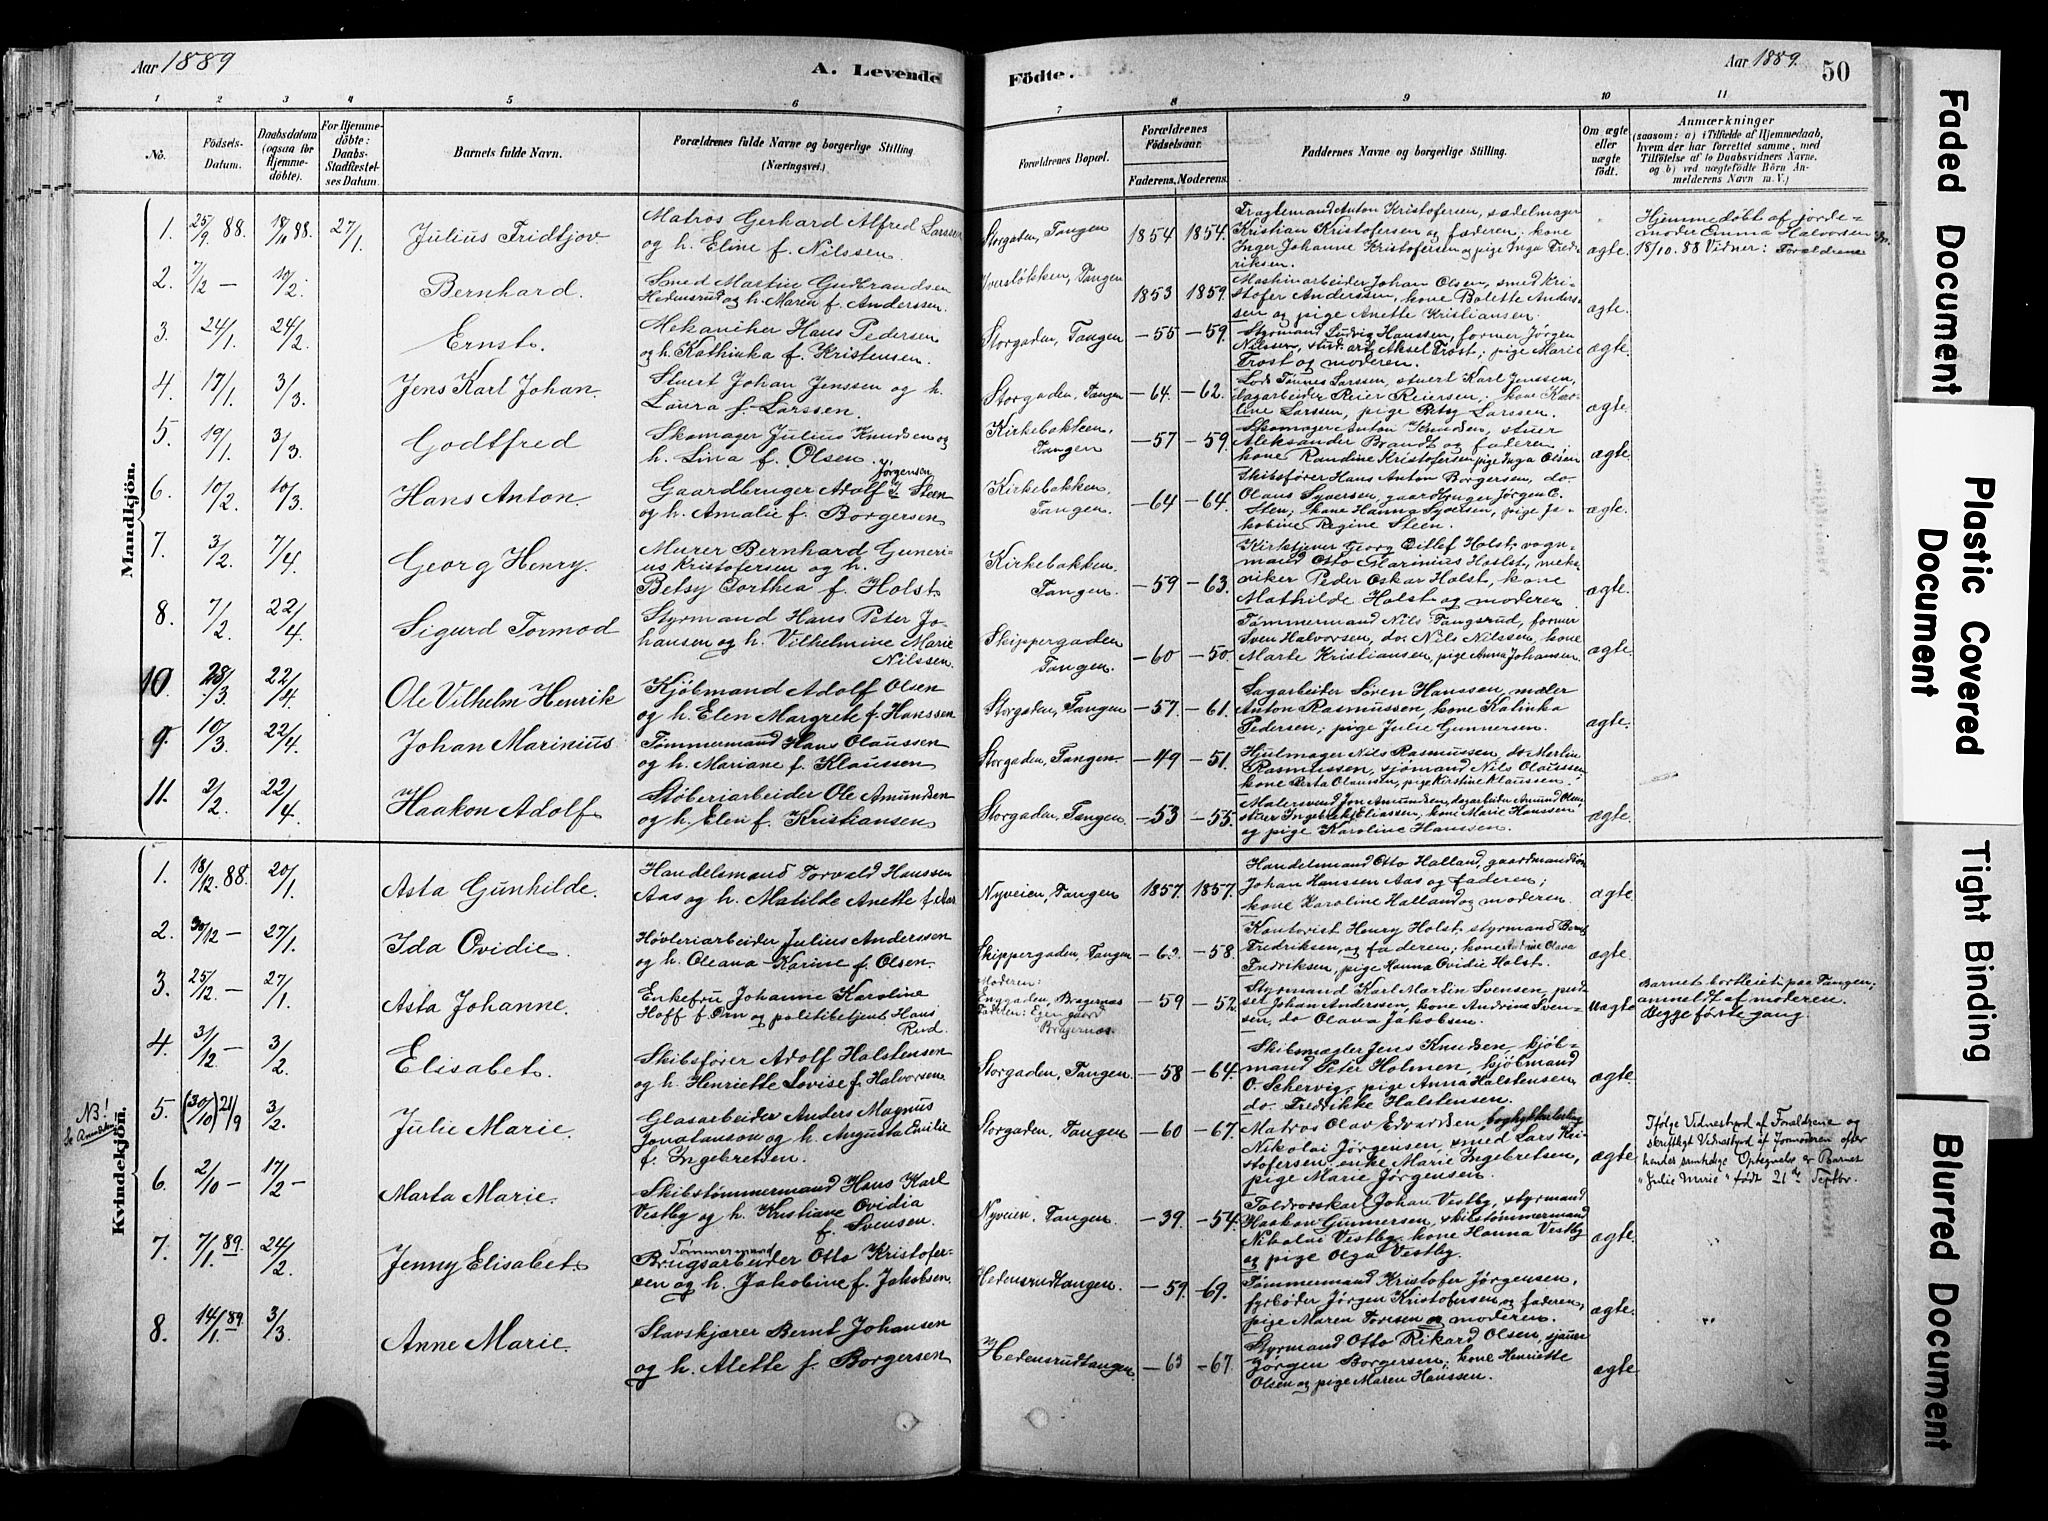 Aar 1889
A. Levende
Födte.
Aar 1889.
50
1 2 3 4 5 6 7 8 9 10 11
No.
Födsels-
Datum.
Daabsdatum
(ogsaa for
Hjemme-
döbte).
For Hjemme-
döbte:
Daabs-
Stadfæstel-
ses Datum.
Barnets fulde Navn.
Forældrenes fulde Navne og borgerlige Stilling
(Næringsvei.)
Forældrenes Bopæl.
Forældrenes
Födselsaar.
Faderens. Moderens.
Faddernes Navne og borgerlige Stilling.
Om ægte
eller
uægte
födt.
Anmærkninger
(saasom: a) i Tilfælde af Hjemmedaab,
hvem der har forrettet samme, med
Tilföielse af to Daabsvidners Navne,
og b) ved uægtefödte Börn An-
melderens Navn m. V.)
Mandkjön.
1. 25/9 88. 18/10 88. 27/1. Julius Fridtjov
Matros Gerhard Alfred Larssen
og h. Eline f. Nilssen.
Storgaden, Tangen 1854 1854.
Fragtemand Anton Kristofersen, sadelmager
Kristian Kristofersen og faderen; kone
Inger Johanne Kristofersen og pige Inga Fred-
riksen.
ægte.
Hjemmedøbt af jorde-
moder Emma Halvorsen
18/10. 88 Vidner: Forældrene
2. 7/12 — 10/2. Bernhard.
Smed Martin Gudbrandsen
Hedensrud og h. Maren f. Anderssen.
Iversløkken, Tangen 1853 1859.
Maskinarbeider Johan Olsen, smed Kri-
stofer Anderssen, kone Bolette Anders-
sen og pige Anette Kristiansen.
ægte.
3. 24/1. 24/2. Ernst.
Mekaniker Hans Pedersen
og h. Kathinka f. Kristensen.
Storgaden, Tangen —55 —59.
Styrmand Ludvig Hanssen, former Jørgen
Nilssen, stud. art. Aksel Trost; pige Marie
Trost og moderen.
ægte.
4. 17/1. 3/3. Jens Karl Johan.
Stuert Johan Jenssen og h.
Laura f. Larssen.
Storgaden, Tangen —64. —62.
Lods Tønnes Larssen, stuert Karl Jenssen,
dagarbeider Reier Reiersen; kone Karo-
line Larssen, pige Betsy Larssen.
ægte.
5. 19/1. 3/3. Godtfred
Skomager Julius Knudsen og
h. Lina f. Olsen.
Kirkebakken,
Tangen —57 —59.
Skomager Anton Knudsen, stuer
Aleksander Brandt og faderen;
kone Randine Kristofersen, pige Inga Olsen
ægte.
6. 10/2. 10/3. Hans Anton.
Jørgensen
Gaardbruger Adolf J. Steen
og h. Amalie f. Borgersen
Kirkebakken,
Tangen. —64 —64.
Skibsfører Hans Anton Borgersen, do.
Olaus Syversen, gaardbruger Jørgen O.
Sten; kone Hanna Syversen, pige Ja-
kobine Regine Steen.
ægte.
7. 3/2. 7/4. Georg Henry.
Murer Bernhard Guneri-
us Kristofersen og h.
Betsy Dorthea f. Holst.
Kirkebakken.
Tangen. —59 —63.
Kirketjener Georg Ditlef Holst, vogn-
mand Otto Marinius Holst, meka-
niker Peder Oskar Holst, kone
Mathilde Holst og moderen
ægte.
8. 7/2. 22/4. Sigurd Tormod
Styrmand Hans Peter Jo-
hansen og h. Vilhelmine Marie
Nilssen.
Skippergaden
Tangen. —60 —50.
Tømmermand Nils Tangsrud, former
Sven Halvorsen, do. Nils Nilssen, kone
Marte Kristiansen, pige Anna Johansen.
ægte.
10. 28/3. 22/4. Ole Vilhelm Henrik
Kjøbmand Adolf Olsen
og h. Elen Margrete f. Hanssen
Storgaden, Tangen —57. —61.
Sagarbeider Søren Hanssen, maler
Anton Rasmussen, kone Kalinka
Pedersen; pige Julie Gunnersen.
ægte.
9. 10/3. 22/4. Johan Marinius.
Tømmermand Hans Olaussen
og h. Mariane f. Klaussen
Storgaden, Tangen —49 —51.
Hjulmager Nils Rasmussen, do. Martin
Rasmussen, sjømand Nils Olaussen,
kone Berta Olaussen, pige Kirstine Klaussen.
11. 2/2. 22/4. Haakon Adolf.
Støberiarbeider Ole Amundsen
og h. Elen f. Kristiansen
Storgaden, Tangen. —53 —55.
Malersvend Jon Amundsen, dagarbeider Amund Olsen,
stuer Ingebret Eliassen, kone Marie Hanssen
og pige Karoline Hanssen.
ægte.
Kvindekjön.
1. 18/12. 88. 20/1. Asta Gunhilde.
Handelsmand Torvald Hanssen
Aas og h. Matilde Anette f. Aas.
Nyveien, Tangen 1857. 1857.
Handelsmand Otto Halland, gaardmand
Johan Hanssen Aas og faderen;
kone Karoline Halland og moderen.
ægte.
2. 30/12 — 27/1. Ida Ovidie.
Høvleriarbeider Julius Anderssen
og h. Oleana Karine f. Olsen.
Skippergaden, Tangen —63. —58.
Kontorist Henry Holst, styrmand Bernt
Fredriksen, og faderen; kone Andrine Olava
Fredriksen, pige Hanna Ovidie Holst.
ægte.
3. 25/12. — 27/1. Asta Johanne.
Enkefru Johanne Karoline
Hoff f. Ørn og politibetjent Hans
Rud.
Moderen:
Enggaden, Bragernæs
Faderen: Egen gaard
Bragernæs. —59 —52.
Styrmand Karl Martin Svensen, pud-
ser Johan Anderssen, kone Andrine Sven-
sen, do Olava Jakobsen.
uægte
Barnet bortleiet paa Tangen,
anmeldt af moderen.
Begge første gang.
4. 31/12 — 3/2. Elisabet.
Skibsfører Adolf Halstensen
og h. Henriette Lovise f. Halvorsen.
Storgaden, Tangen. —58 —64.
Skibsmægler Jens Knudsen, kjøb-
mand Peter Holmen, kjøbmand
O. Schervig, pige Anna Halstensen,
do. Fredrikke Halstensen.
ægte.
NB!
5. (30/10) 21/9 3/2. Julie Marie.
Glasarbeider Anders Magnus
Jonatanson og h. Augusta Emilie
f. Ingebretsen.
Storgaden, Tangen. —60 —67.
Matros Olav Edvardsen,
Nikolai Jørgensen, smed Lars Kri-
stofersen, enke Marie Ingebretsen,
pige Marie Jørgensen.
ægte
Ifølge Vidnesbyrd af Forældrene og
skriftligt Vidnesbyrd af Jormoderen efter
hendes samtidige Optegnelse er Barnet
"Julie Marie" født 21de Septbr.
6. 2/10 — 17/2 — Marta Marie.
Skibstømmermand Hans Karl
Vestby og h. Kristiane Ovidia
f. Svensen.
Nyveien, Tangen. —39. —54.
Toldvorskar Johan Vestby, styrmand
Haakon Gunnersen, skibstømmermand
Nikolai Vestby, kone Hanna Vestby
og pige Olga Vestby.
ægte.
7. 7/1. 89. 24/2. Jenny Elisabet.
Tømmermand
Brugsarbeider Otto Kristofer-
sen og h. Jakobine f. Jakobsen.
Hedensrudtangen. —59. —69.
Tømmermand Kristofer Jørgensen,
fyrbøder Jørgen Kristofersen og faderen,
pige Maren Toresen og moderen.
ægte.
8. 14/1 89. 3/3. Anne Marie.
Stavskjærer Bernt Johansen
og h. Alette f. Borgersen
Hedensrudtangen. —63 —67.
Styrmand Otto Rikard Olsen, sjauer
Jørgen Borgersen; kone Henriette
Olsen og pige Maren Hanssen.
ægte
Faded Document
Plastic Covered
Document
Tight Binding
Blurred Document